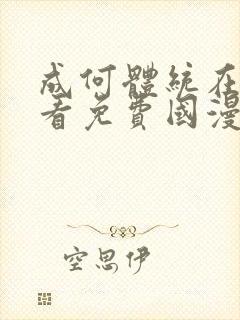 成何體統在
看免費國漫
空思伊